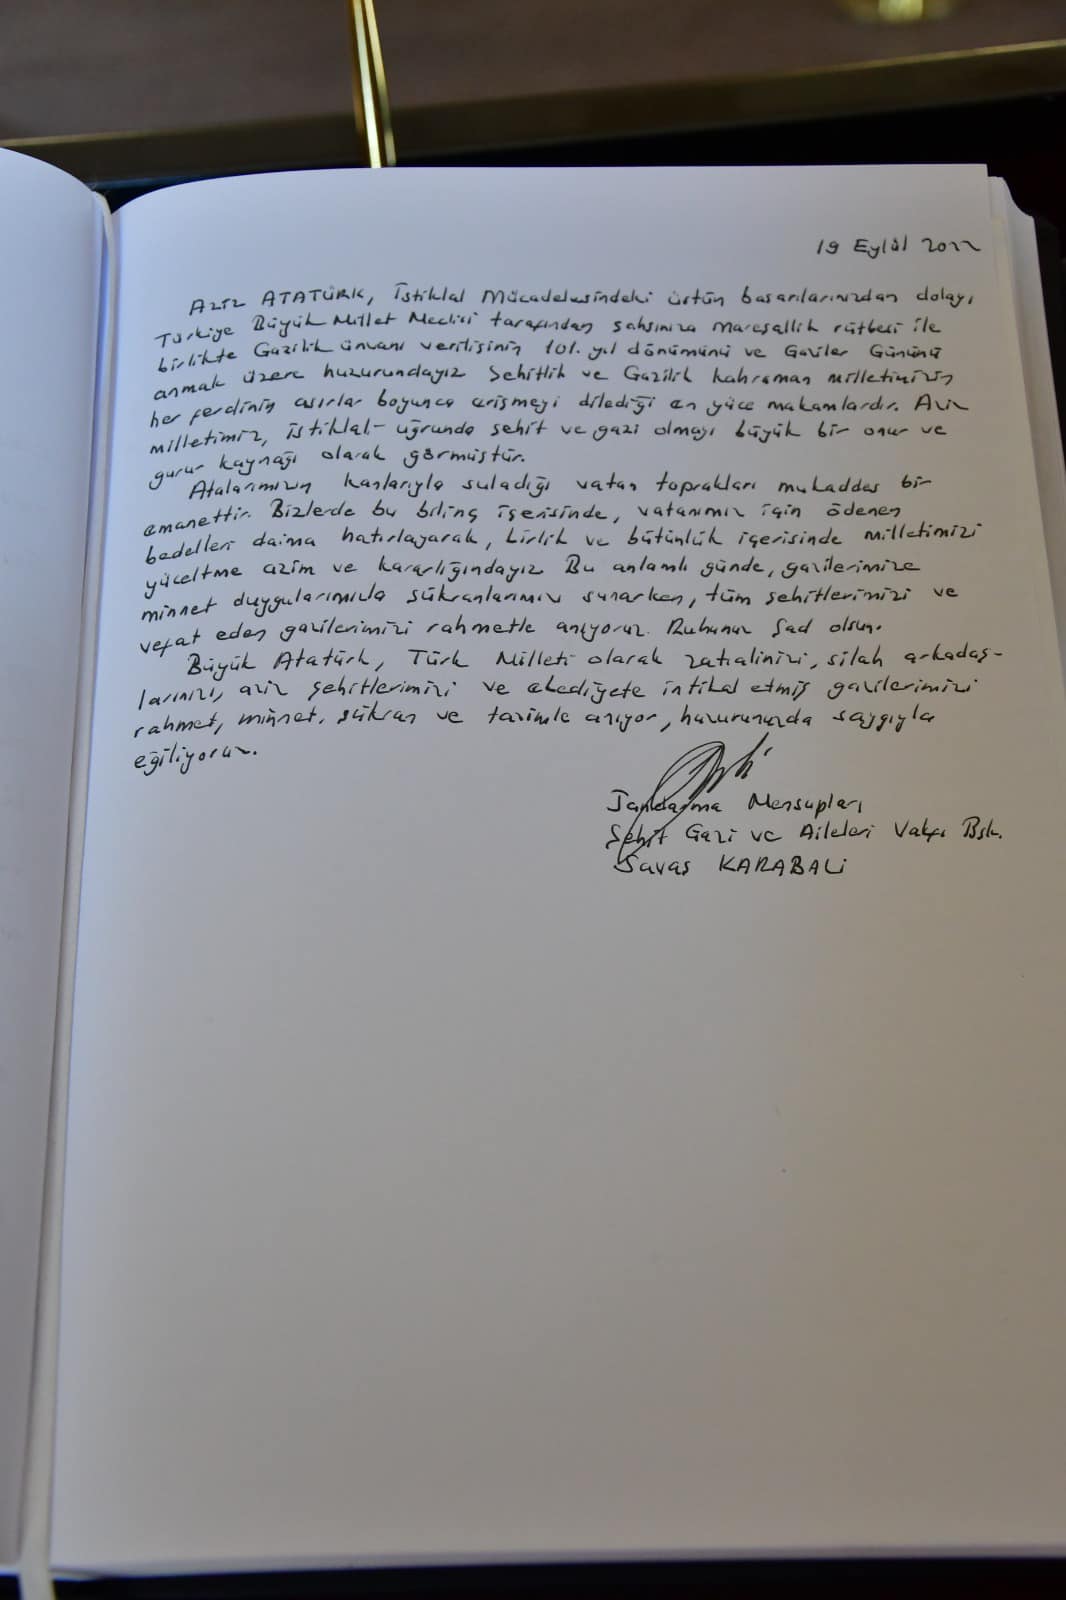 19 Eylül 2022
Aziz ATATÜRK, İstiklal Mücadelesindeki üstün başarılarınızdan dolayı
Türkiye Büyük Millet Meclisi tarafından şahsınıza mareşallik rütbesi ile
birlikte Gazilik ünvanı verilişinin 101. yıl dönümünü ve Gaziler Gününü
anmak üzere huzurundayız Şehitlik ve Gazilik kahraman milletimizin
her ferdinin asırlar boyunca erişmeyi dilediği en yüce makamlardır. Aziz
milletimiz, istiklal uğrunda şehit ve gazi olmayı büyük bir onur ve
gurur kaynağı olarak görmüştür.
Atalarımızın kanlarıyla suladığı vatan toprakları mukaddes bir
emanettir. Bizlerde bu bilinç içerisinde, vatanımız için ödenen
bedelleri daima hatırlayarak, birlik ve bütünlük içerisinde milletimizi
yüceltme azim ve kararlığındayız Bu anlamlı günde, gazilerimize
minnet duygularımızla şükranlarımızı sunarken, tüm şehitlerimizi ve
vefat eden gazilerimizi rahmetle anıyoruz. Ruhunuz Şad olsun.
Büyük Atatürk, Türk Milleti olarak zatıalinizi, silah arkadaş-
larınızı, aziz şehitlerimizi ve ebediyete intikal etmiş gazilerimizi
rahmet, minnet, şükran ve tazimle anıyor, huzurunuzda saygıyla
eğiliyoruz.
Jandarma Mensupları
Şehit Gazi ve Aileleri Vakfı Bşk.
Savaş KARABALi